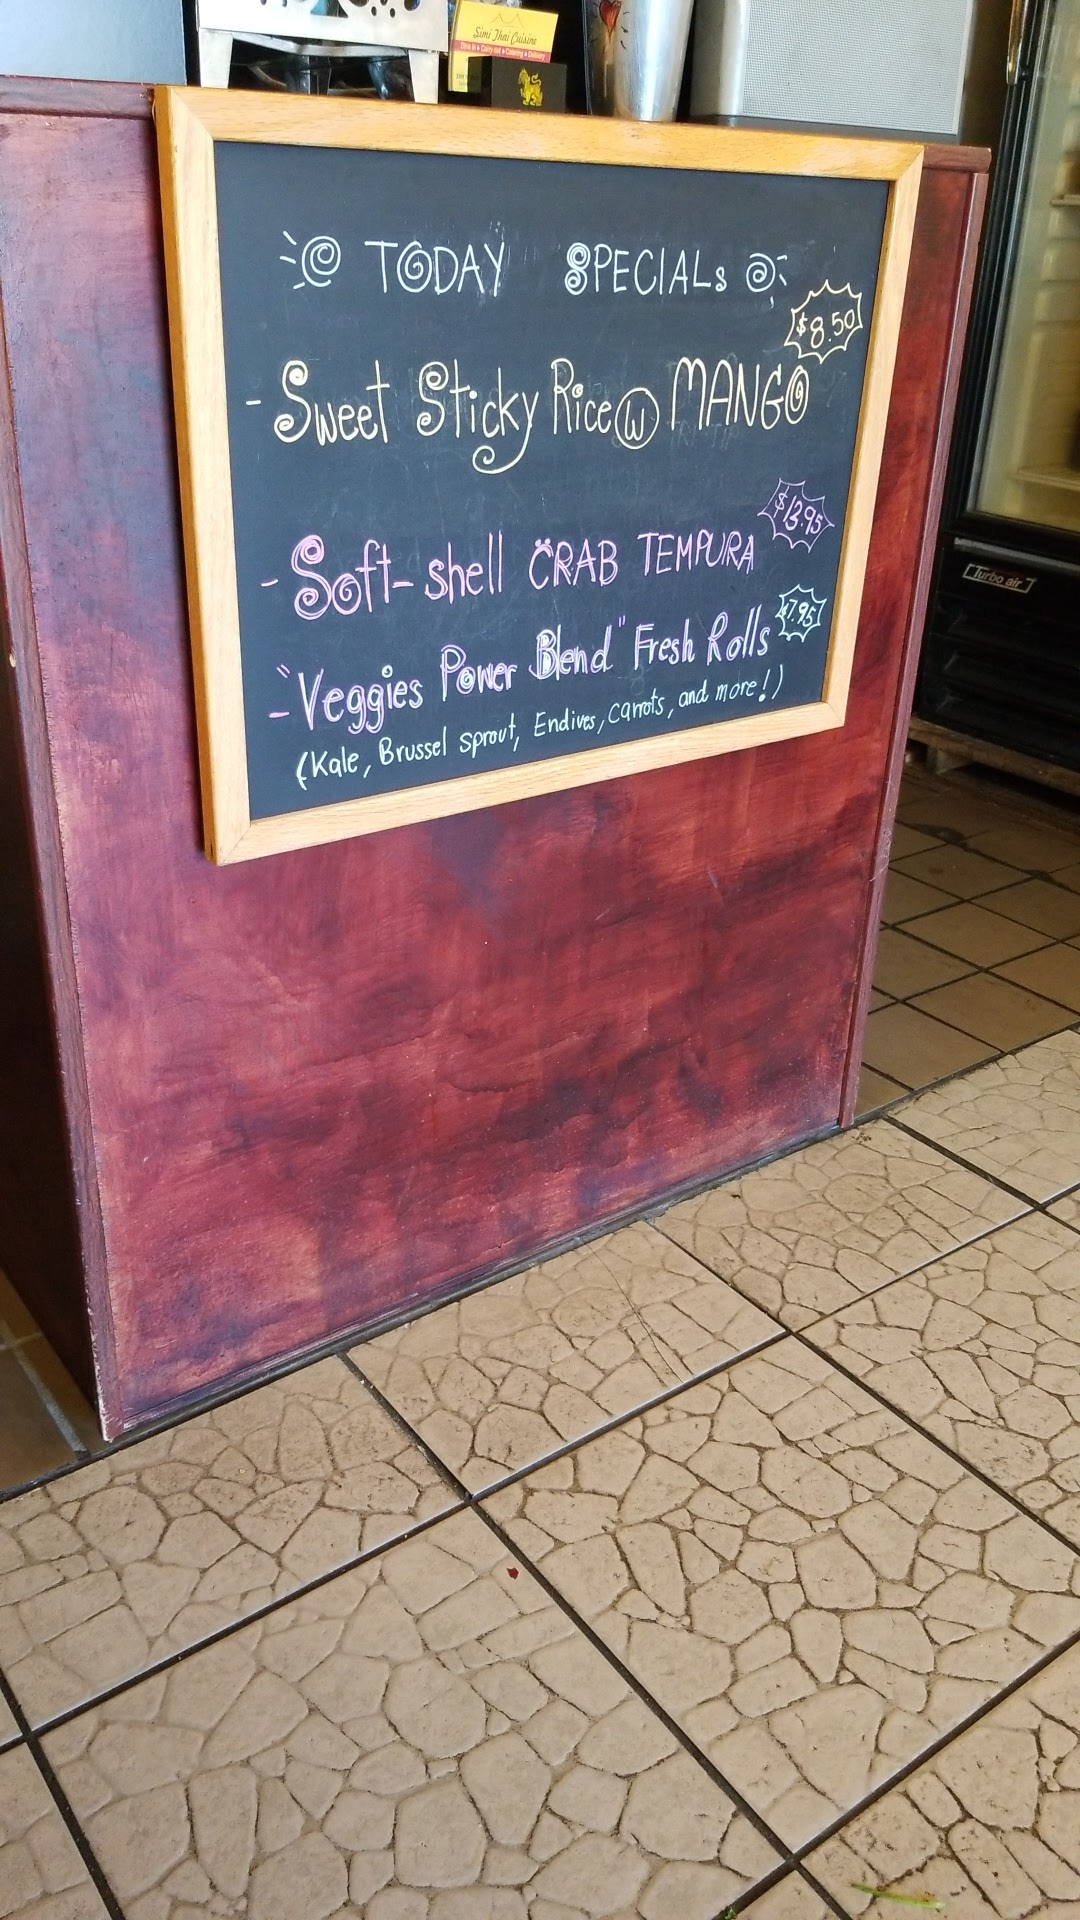 Simi Thai Cuisine
Dine in • Carry out • Catering • Delivery
TODAY SPECIALs
$8.50
- Sweet Sticky Rice w MANGO
$13.95
- Soft-shell CRAB TEMPURA
$7.95
- "Veggies Power Blend" Fresh Rolls
(Kale, Brussel sprout, Endives, carrots, and more!)
Turbo air